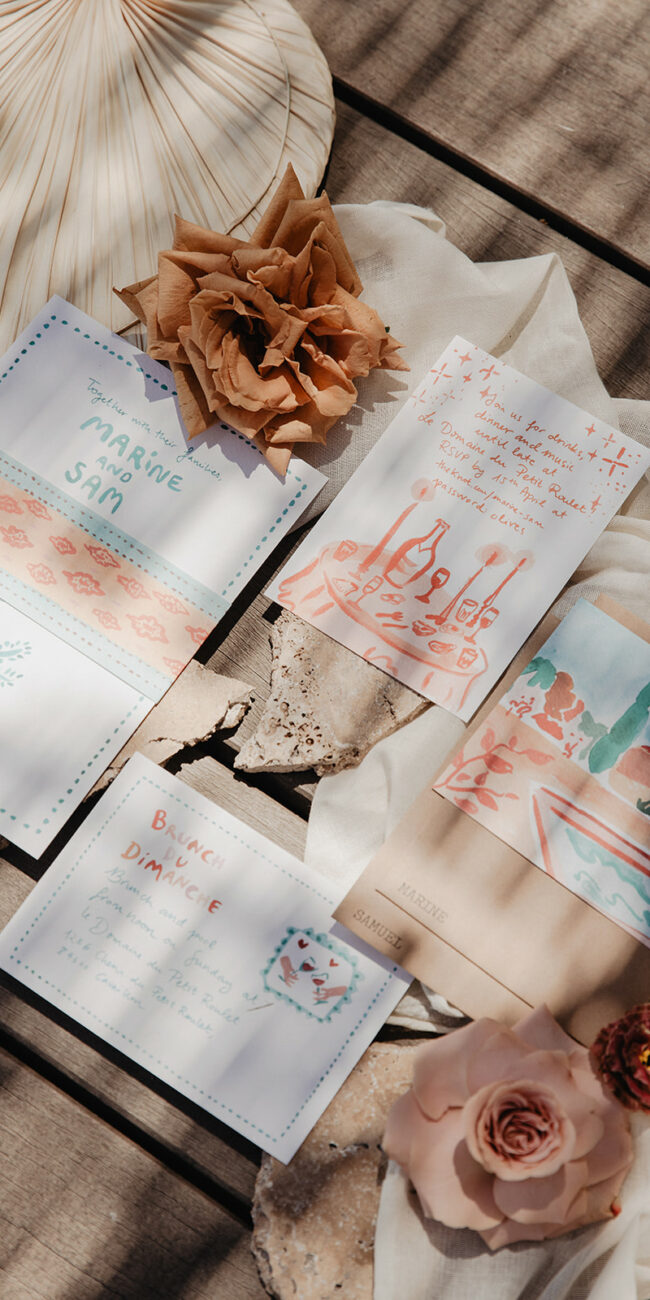 Together with their families,
MARINE
AND
SAM
Join us for drinks,
dinner and music
until late at
Le Domaine du Petit Roulet
RSVP by 15th April at
theknot.com/marine-sam
password olives
BRUNCH
DU
DIMANCHE
Brunch and pool
from noon on Sunday at
Le Domaine du Petit Roulet
Chemin du Petit Roulet
MARINE
SAMUEL